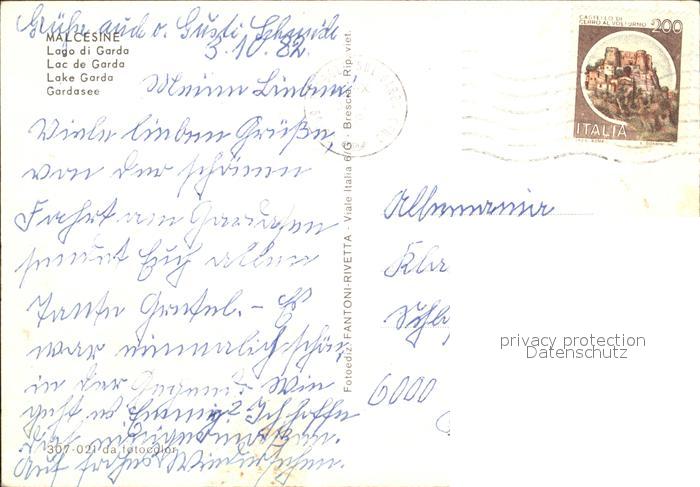 Grüße auch v. Gusti Schmidt
MALCESINE
Lago di Garda
Lac de Garda
Lake Garda
Gardasee
3.10.82.
Meine Lieben!
Viele lieben Grüße,
von der schönen
Fahrt am Gardasee
sendet Euch allen
Tante Gretel. – Es
war einmalich schön
in der Gegend. Wie
geht es Emmy? Ich hoffe
daß
Auf frohes Wiedersehen.
307-021 da fotocolor
Fotoediz. FANTONI-RIVETTA - Viale Italia 6/G - Brescia - Rip. viet.
CASTELLO DI
CERRO AL VOLTURNO
200
ITALIA
Allemania
Kla
Schl
6000
privacy protection
Datenschutz